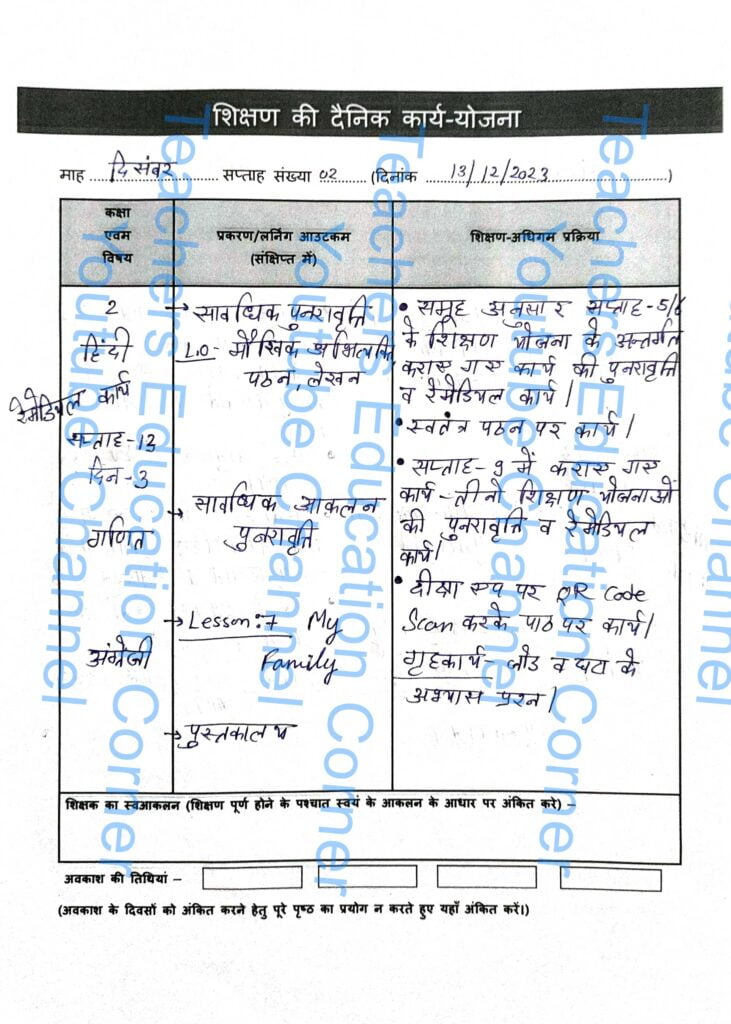 शिक्षण की दैनिक कार्य-योजना
माह ....दिसंबर.... सप्ताह संख्या 02 (दिनांक 13/12/2023)
कक्षा
एवम
विषय
प्रकरण/लर्निग आउटकम
(संक्षिप्त में)
शिक्षण-अधिगम प्रक्रिया
2
हिंदी
रेमेडियल कार्य
सप्ताह-13
दिन-3
गणित
अंग्रेजी
→ सावधिक पुनरावृत्ति
L.O- मौखिक अभिव्यक्ति
पठन, लेखन
→ सावधिक आकलन
पुनरावृत्ति
→ Lesson:7 My
Family
→ पुस्तकालय
• समूह अनुसार सप्ताह-5/6
के शिक्षण योजना के अन्तर्गत
कराए गए कार्य की पुनरावृत्ति
व रेमेडियल कार्य।
• स्वतंत्र पठन पर कार्य।
• सप्ताह-9 में कराए गए
कार्य-तीनो शिक्षण योजनाओं
की पुनरावृत्ति व रेमेडियल
कार्य।
• दीक्षा एप पर QR Code
Scan करके पाठ पर कार्य।
गृहकार्य- जोड व घटा के
अभ्यास प्रश्न।
शिक्षक का स्वआकलन (शिक्षण पूर्ण होने के पश्चात स्वयं के आकलन के आधार पर अंकित करे) –
अवकाश की तिथियां –
(अवकाश के दिवसों को अंकित करने हेतु पूरे पृष्ठ का प्रयोग न करते हुए यहाँ अंकित करें।)
Teachers Education Corner
Youtube Channel
Teachers Education Corner
Youtube Channel
Teachers Education Corner
Youtube Channel